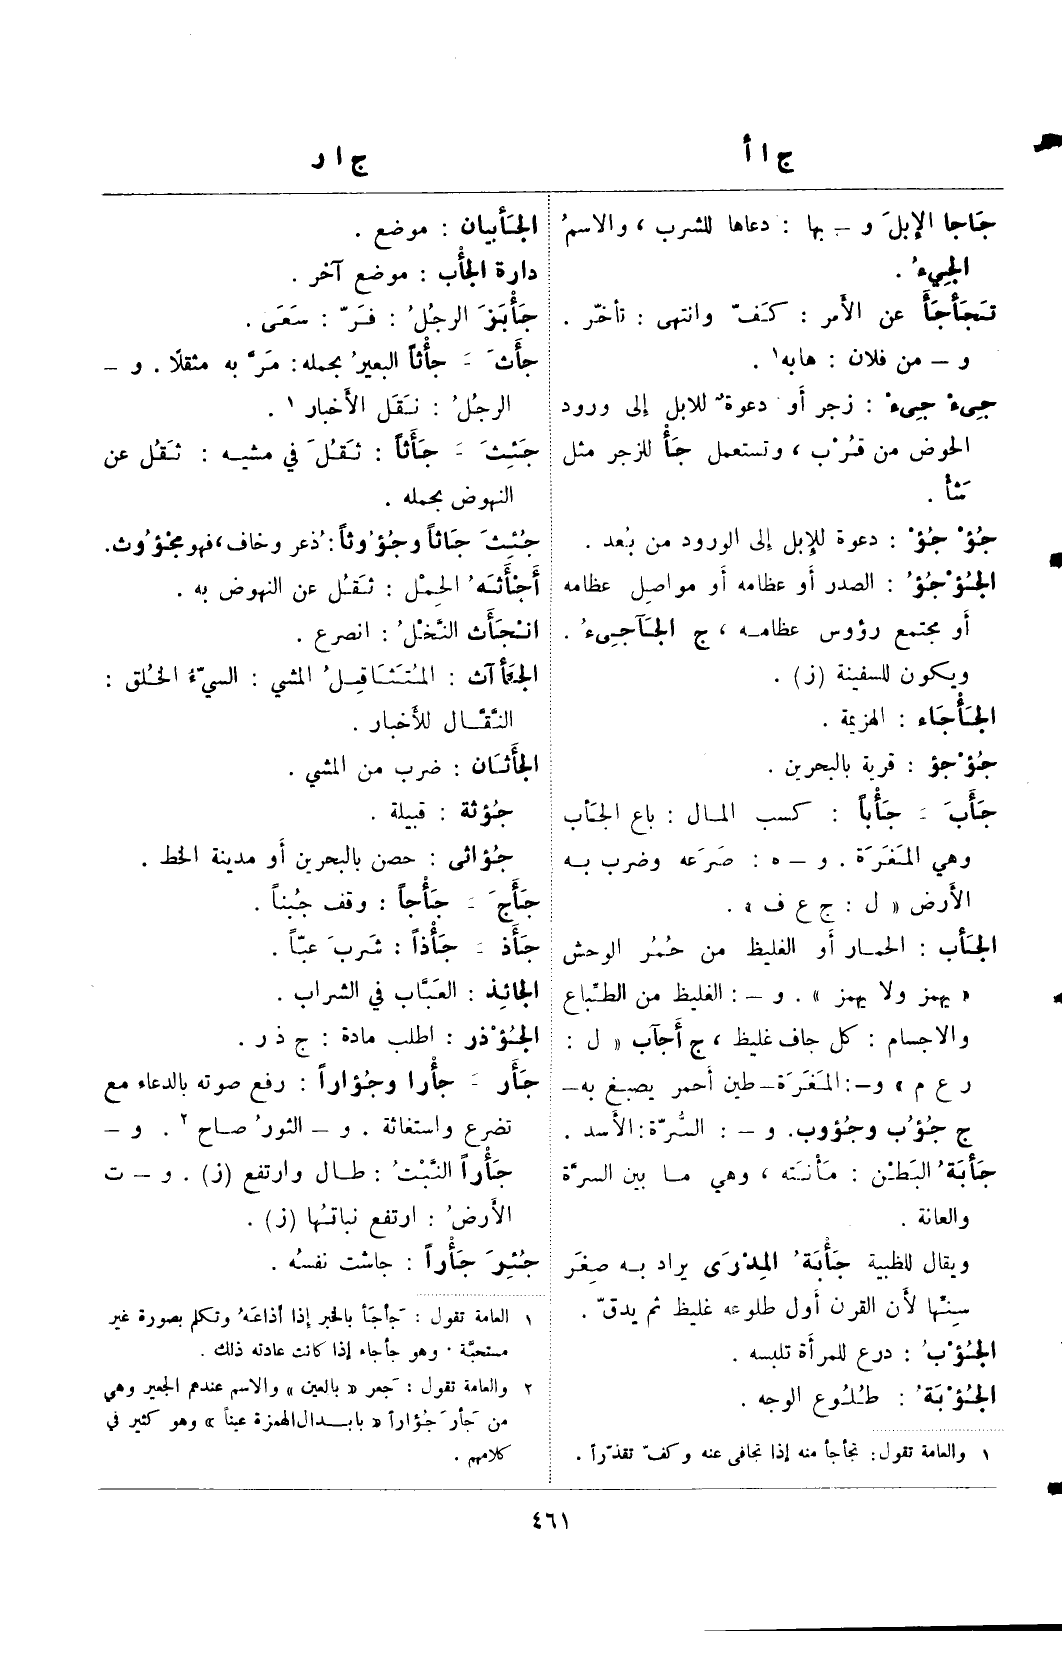 ج ا أ
ج ا ر
جَاجا الإبلَ و – بها : دعاها للشرب ، والاسمُ
الجِيءُ .
تَجَأْجَأَ عن الأمر : كَفّ وانتهى : تأخّر .
و – من فلان : هابه ١ .
جِيءْ جِيءْ : زجر أو دعوة للابل إلى ورود
الحوض من قُرْب ، وتستعمل جَأْ للزجر مثل
شَأْ .
جُؤْ جُؤْ : دعوة للإبل إلى الورود من بُعد .
الجُؤْجُؤُ : الصدر أو عظامه أو مواصل عظامه
أو مجتمع رؤوس عظامه ، ج الجَآجِيءُ .
ويكون للسفينة (ز) .
الجَأْجَاء : الهزيمة .
جُؤْجؤ : قرية بالبحرين .
جَأَبَ – جَأْباً : كسب المال : باع الجَأب
وهي المَغَرَة . و – ه : صَرَعه وضرب به
الأرض « ل : ج ع ف » .
الجَأب : الحمار أو الغليظ من حُمُر الوحش
« يهمز ولا يهمز » . و – : الغليظ من الطِّباع
والاجسام : كل جاف غليظ ، ج أَجآب « ل :
ر ع م » و–: المَغَرَة – طين أحمر يصبغ به –
ج جُؤُب وجُؤوب. و – : السُّرّة: الأسد .
جَأبَةُ البَطْن : مَأنَتَه ، وهي ما بين السرَّة
والعانة .
ويقال للظبية جَأْبَةُ المِدْرَى يراد به صِغَر
سِنِّها لأن القرن أول طلوعه غليظ ثم يدقّ .
الجُؤْبُ : درع للمرأة تلبسه .
الجُؤْبَةُ : طُلُوع الوجه .
١ والعامة تقول: تجأجأ منه إذا تجافى عنه وكفّ تقذّراً .
الجَأبيان : موضع .
دارة الجَأْب : موضع آخر .
جَأْبَزَ الرجُلُ : فَرّ : سَعَى .
جأَثَ – جأْثاً البعيرُ بحمله: مَرَّ به مثقلًا . و –
الرجُلُ : نَقَل الأخبار ١ .
جَئِثَ – جَأَثاً : ثَقُلَ في مشيه : ثَقُل عن
النهوض بحمله .
جُئِثَ جَاثاً وجُؤُوثاً : ذُعر وخاف ، فهو مَجْؤُوث.
أَجْأَثَهُ الحِمْل : ثَقُل عن النهوض به .
انْجَأَث النَّخْلُ : انصرع .
الجَأآث : المُتَثَاقِلُ المشي : السيّءُ الخُلق :
النَّقَّال للأخبار .
الجَأَثَان : ضرب من المشي .
جُؤثة : قبيلة .
جُؤاثى : حصن بالبحرين أو مدينة الخط .
جَأَجَ – جَأْجاً : وقف جُبناً .
جَأَذ – جَأْذاً : شَرِبَ عبّاً .
الجائِذ : العَبَّاب في الشراب .
الجُؤْذر : اطلب مادة : ج ذ ر .
جَأَر – جأْرا وجُؤاراً : رفع صوته بالدعاء مع
تضرع واستغاثة . و – الثورُ صاح ٢ . و –
جَأْراً النَّبْتُ : طال وارتفع (ز) . و – ت
الأرضُ : ارتفع نباتُها (ز) .
جَئِرَ جَأَراً : جاشت نفسُه .
١ العامة تقول : جَأجَأ بالخبر إذا أذاعَهُ وتكلم بصورة غير
مستحبَّة . وهو جأجاء إذا كانت عادته ذلك .
٢ والعامة تقول : جَعر « بالعين » والاسم عندهم الجعير وهي
من جَأرَ جُؤاراً « بابدال الهمزة عيناً » وهو كثير في
كلامهم .
٤٦١